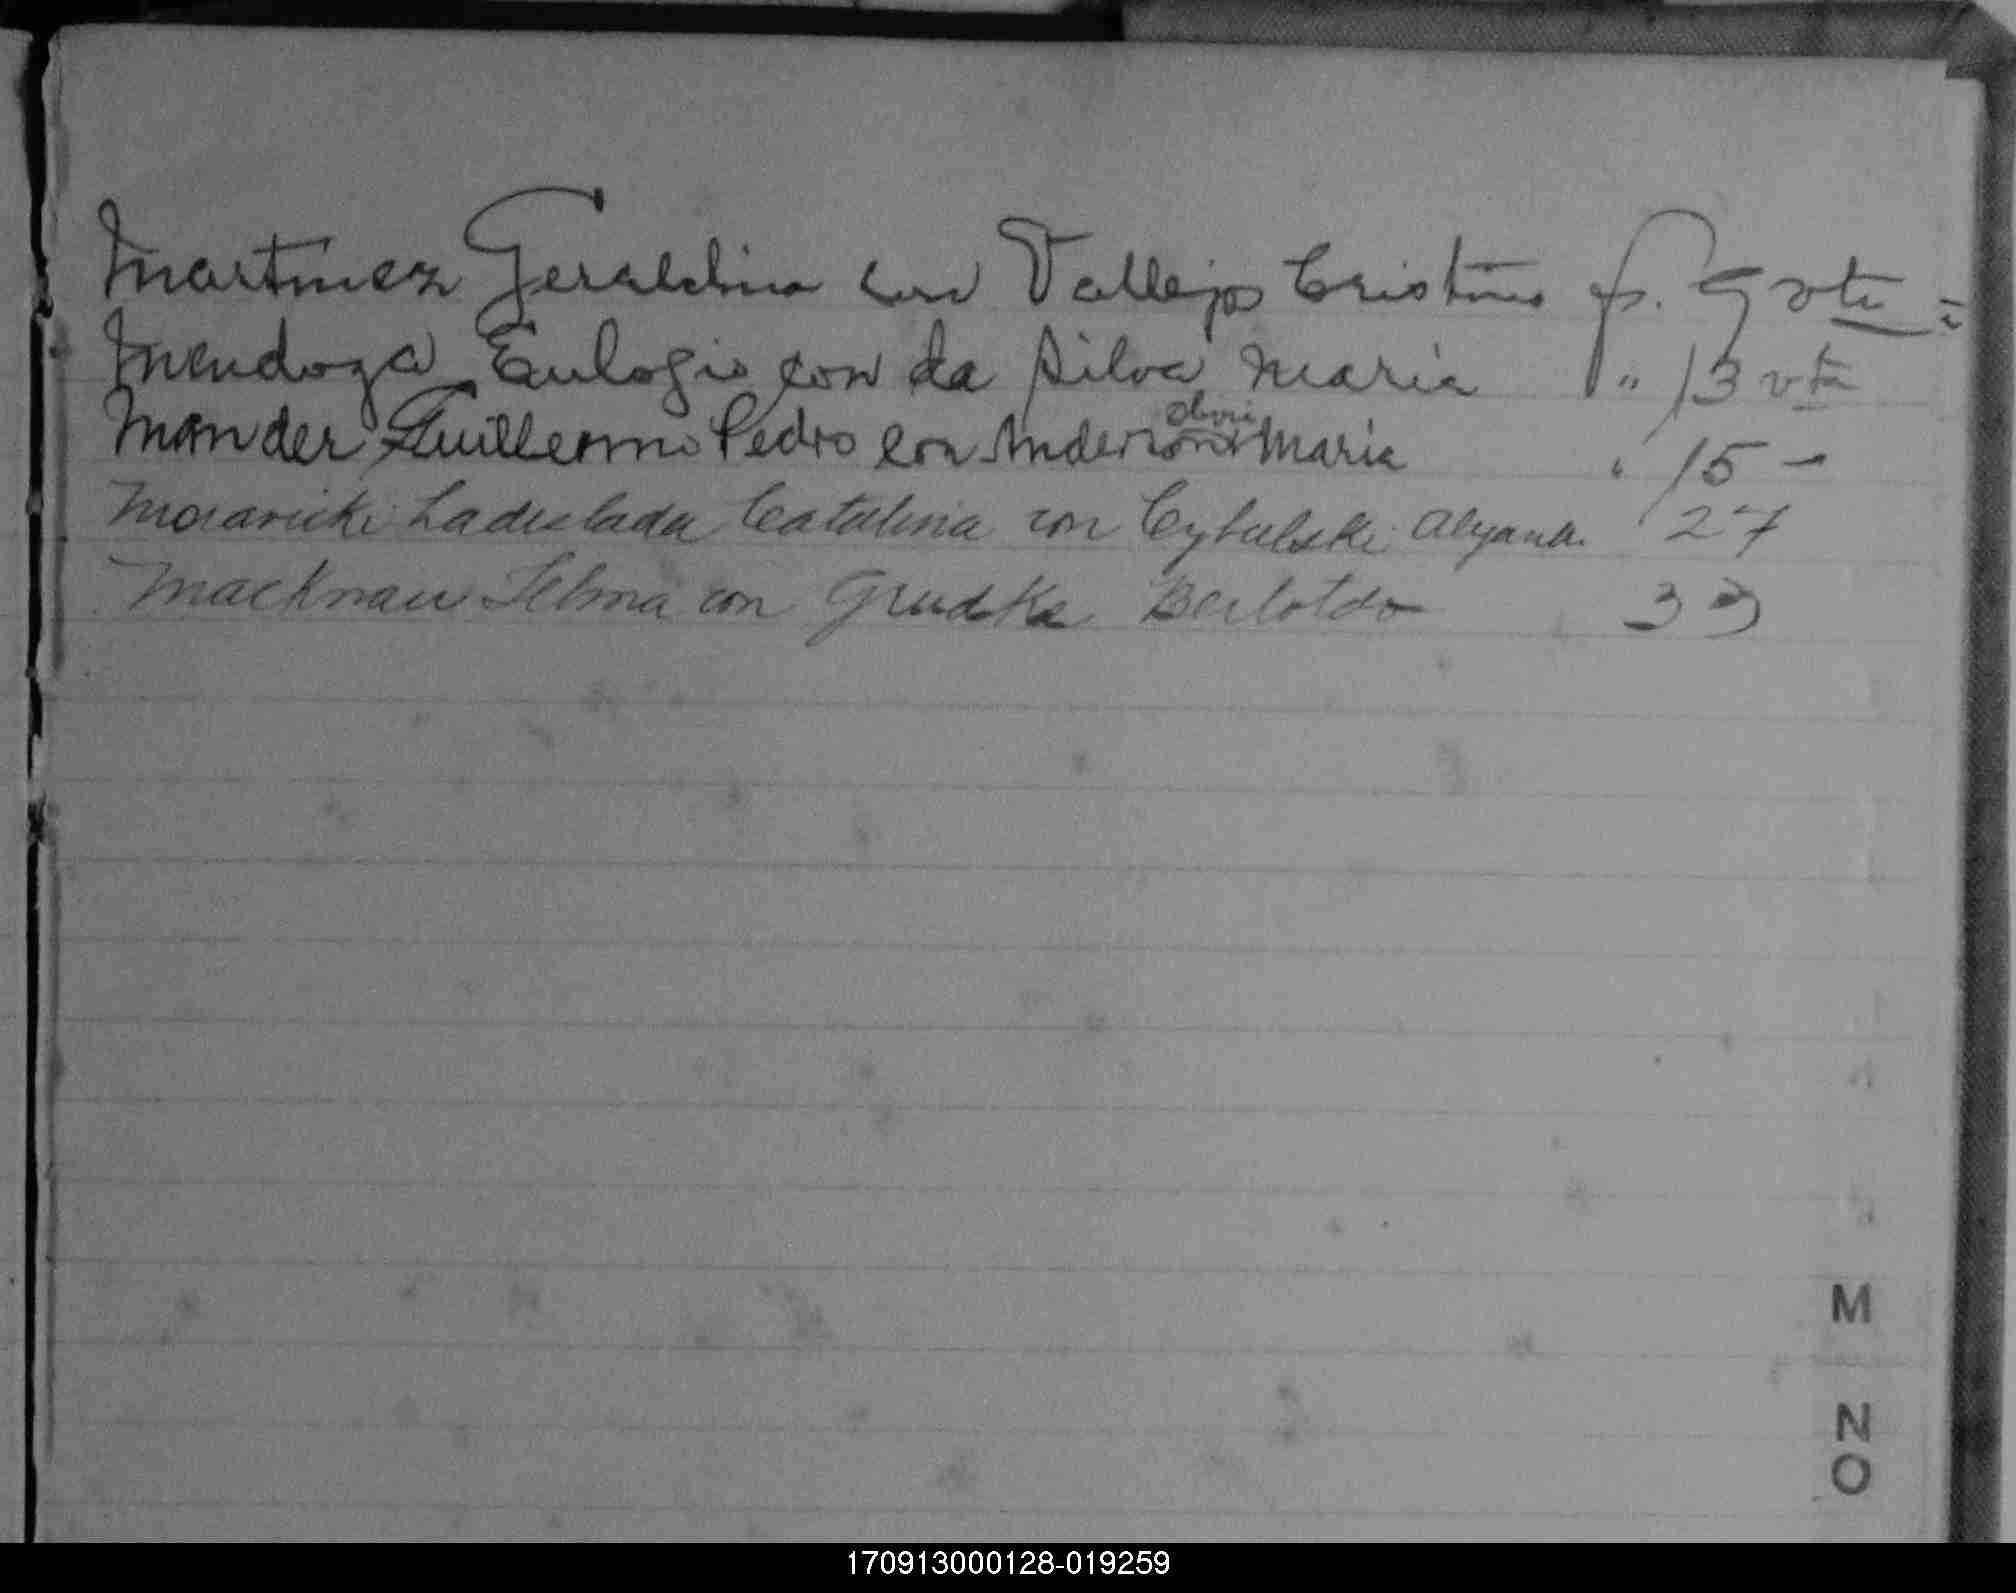 Martinez Geraldina con Vallejos Cristino fs. 9 vta =
Mendoza Eulogio con da Silva Maria " 13 vta
Mander Guillermo Pedro con Anderson Maria " 15 -
Ladislada Catalina con Cybulski 27
Macknau Selma con Grudke Bertoldo 33
M
N
O
170913000128-019259